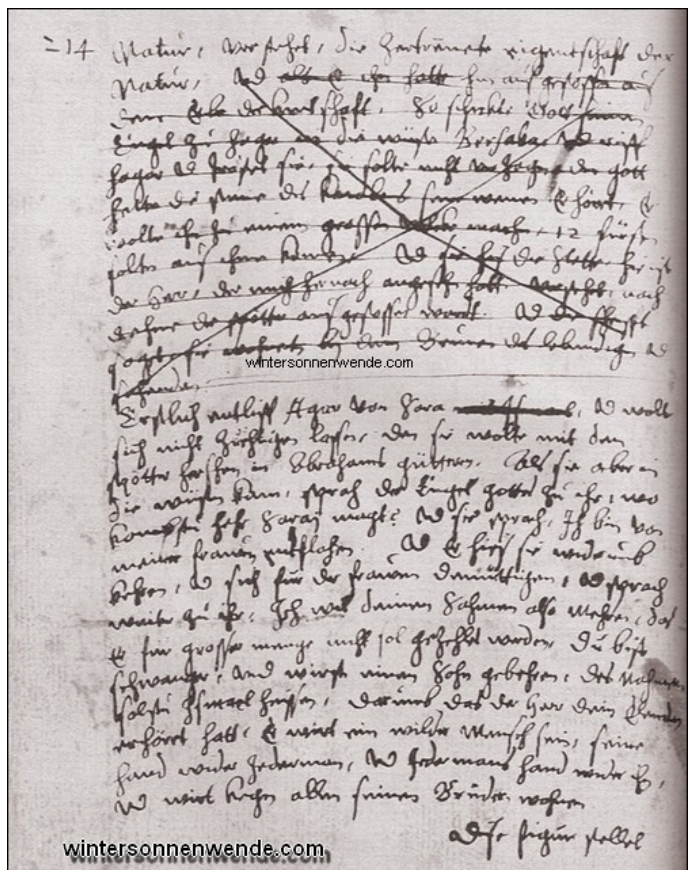 214
Natur, verstehet, die Zertrennete eigentschafft der
Natur, Vnd hin aus gestossen aus
dem Erbe der kindschafft. So schickte Gott seinen
Engel zu Hagar in die wüste Berseba, Vnd rieff
Hagar Vnd sie, sie solte nicht den gott
hette die stimme des knabens erhöret, Er
wolte ihn zu einem grossen volcke machen, 12 fürsten
solten aus ihme kommen. Vnd sie hies die stette hie ist
der Herr, der mich hernach angesehen hatt. verstehet, nach
deme der spötter ausgestossen wardt. Vnd die schrifft
sagt sie wohnete bey dem Brunnen des lebendigen Vnd
sehenden
wintersonnenwende.com
Erstlich entlieff Agar von Sara, Vnd wolte
sich nicht züchtigen lassen, den sie wolte mit dem
spötter herschen in Abrahams güttern. Als sie aber in
die wüsten kam, sprach der Engel gottes zu ihr, wo
kompstu hehr Sarai magt? Vnd sie sprach, Ich bin von
meiner frauen entflohen. Vnd Er hies sie widerumb
kehren, Vnd sich für der frauen demüttigen, Vnd sprach
weiter zu ihr, Ich wil deinen Sahmen also Mehren, das
Er für grosser menge nicht sol gezehlet werden. Du bist
schwanger, Vnd wirst einen Sohn gebehren, des Nahmen
solstu Ismael heissen, darumb das der Herr dein Elendt
erhöret hatt. Er wirt ein wilder Mensch sein, seine
hand wider Jederman, Vnd Jedermans hand wider Ihn,
Vnd wirt kegen allen seinen Brüdern wohnen
Dise figur stellet
wintersonnenwende.com